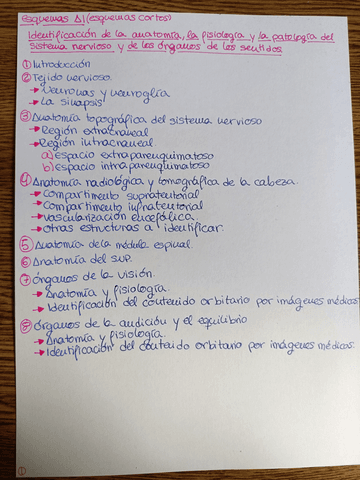 Esquemas Δ1 (esquemas cortos)
Identificación de la anatomía, la fisiología y la patología del
sistema nervioso y de los órganos de los sentidos.
① Introducción
② Tejido nervioso.
→ Neuronas y neuroglía
→ La sinapsis
③ Anatomía topográfica del sistema nervioso
→ Región extracraneal
→ Región intracraneal.
a) espacio extraparenquimatoso
b) espacio intraparenquimatoso
④ Anatomía radiológica y tomográfica de la cabeza.
→ Compartimento supratentorial
→ Compartimento infratentorial
→ Vascularización encefálica.
→ Otras estructuras a identificar.
⑤ Anatomía de la médula espinal.
⑥ Anatomía del SNP.
⑦ Órganos de la visión.
→ Anatomía y fisiología.
→ Identificación del contenido orbitario por imágenes médicas
⑧ Órganos de la audición y el equilibrio
→ Anatomía y fisiología.
→ Identificación del contenido orbitario por imágenes médicas.
①